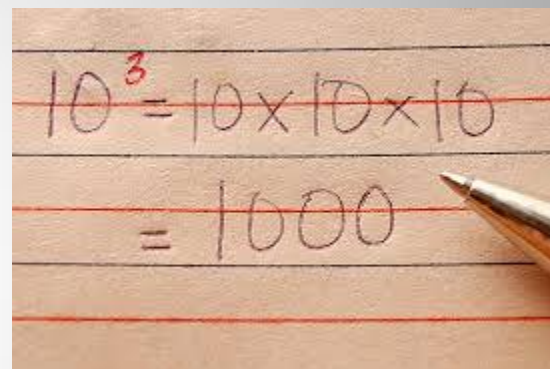 10³ = 10x10x10
= 1000